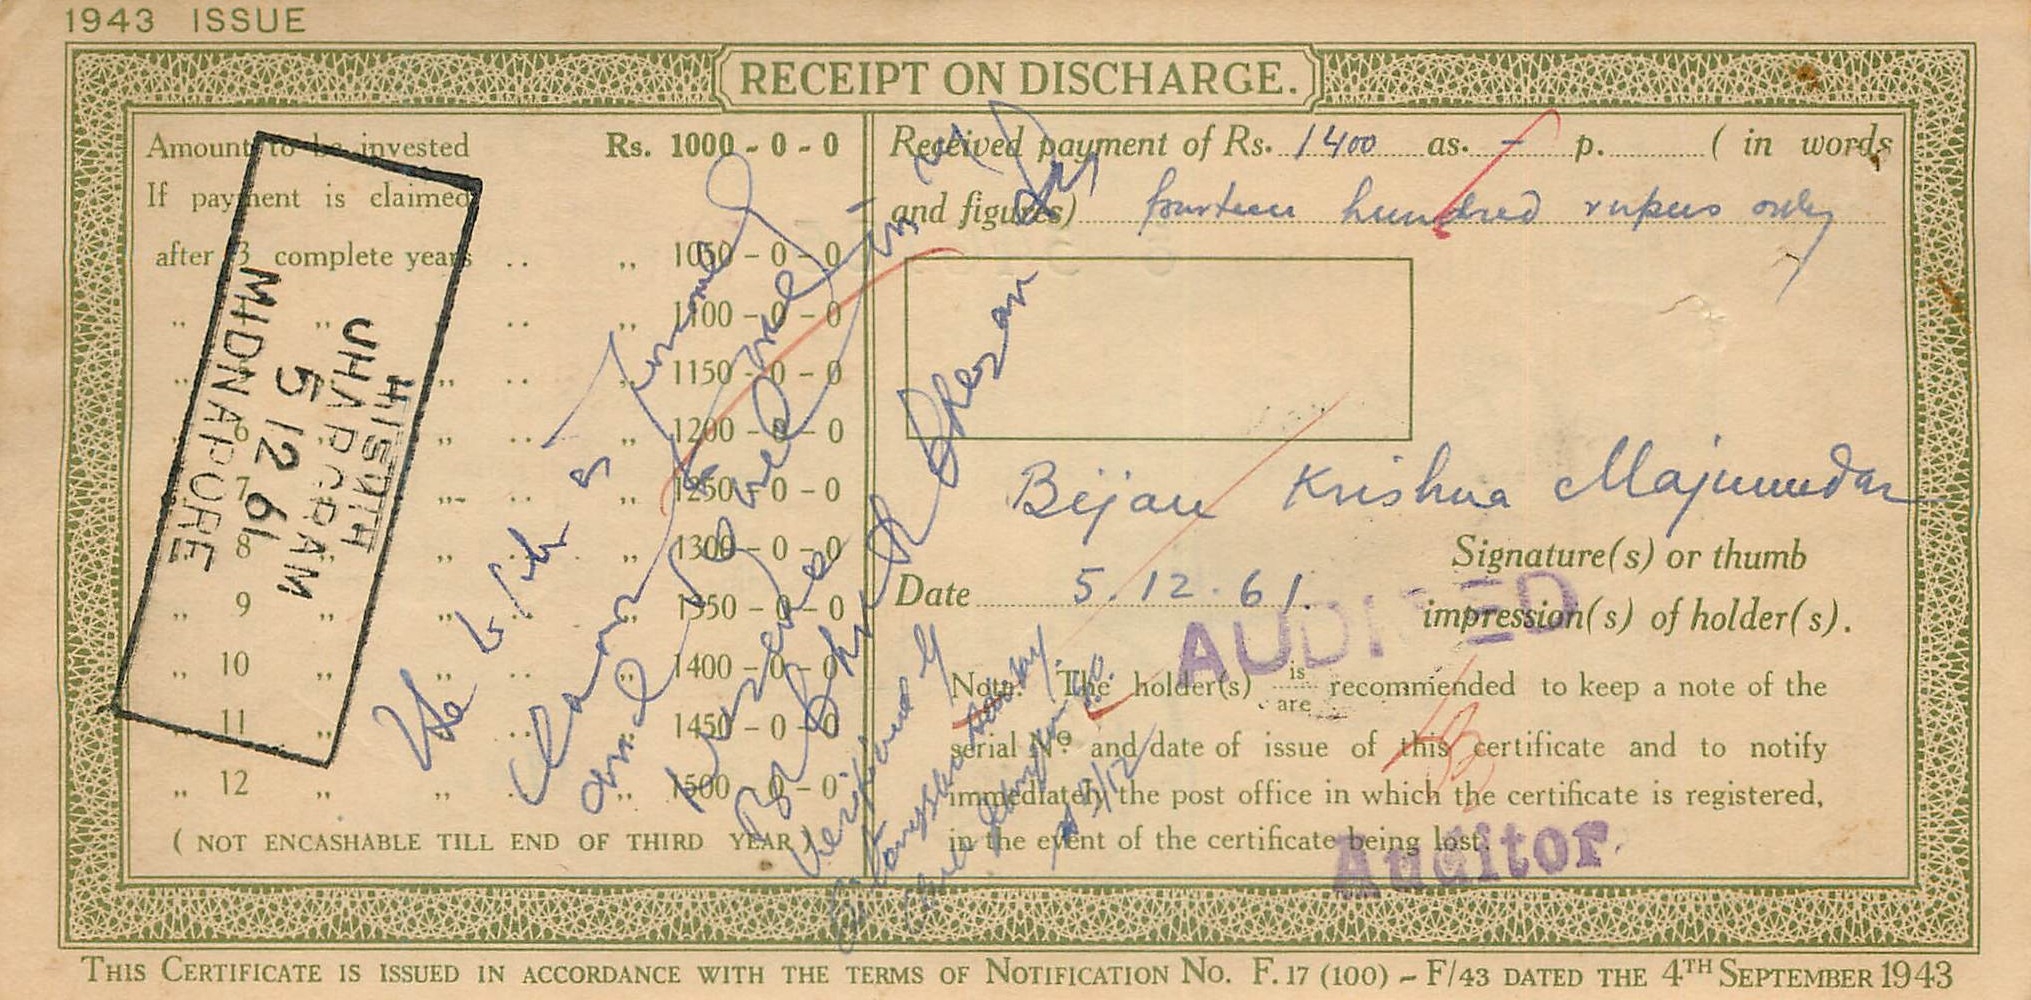 1943 ISSUE
RECEIPT ON DISCHARGE.
Amount to be invested Rs. 1000 - 0 - 0
If payment is claimed
after 3 complete years .. ,, 1050 - 0 - 0
,, ,, ,, .. ,, 1100 - 0 - 0
,, ,, .. ,, 1150 - 0 - 0
,, 6 ,, ,, .. ,, 1200 - 0 - 0
,, 7 ,, ,, .. ,, 1250 - 0 - 0
,, 8 ,, ,, .. ,, 1300 - 0 - 0
,, 9 ,, ,, .. ,, 1350 - 0 - 0
,, 10 ,, ,, .. ,, 1400 - 0 - 0
,, 11 ,, ,, .. ,, 1450 - 0 - 0
,, 12 ,, ,, .. ,, 1500 - 0 - 0
( NOT ENCASHABLE TILL END OF THIRD YEAR )
5 12 61
MIDNAPORE
Received payment of Rs. 1400 as. - p. ( in words
and figures) fourteen hundred rupees only
Bijan Krishna Majumdar
Signature(s) or thumb
Date 5.12.61.
impression(s) of holder(s).
AUDITED
Note. The holder(s) is/are recommended to keep a note of the
serial No. and date of issue of this certificate and to notify
immediately the post office in which the certificate is registered,
in the event of the certificate being lost.
Auditor
THIS CERTIFICATE IS ISSUED IN ACCORDANCE WITH THE TERMS OF NOTIFICATION NO. F. 17 (100) - F/43 DATED THE 4TH SEPTEMBER 1943